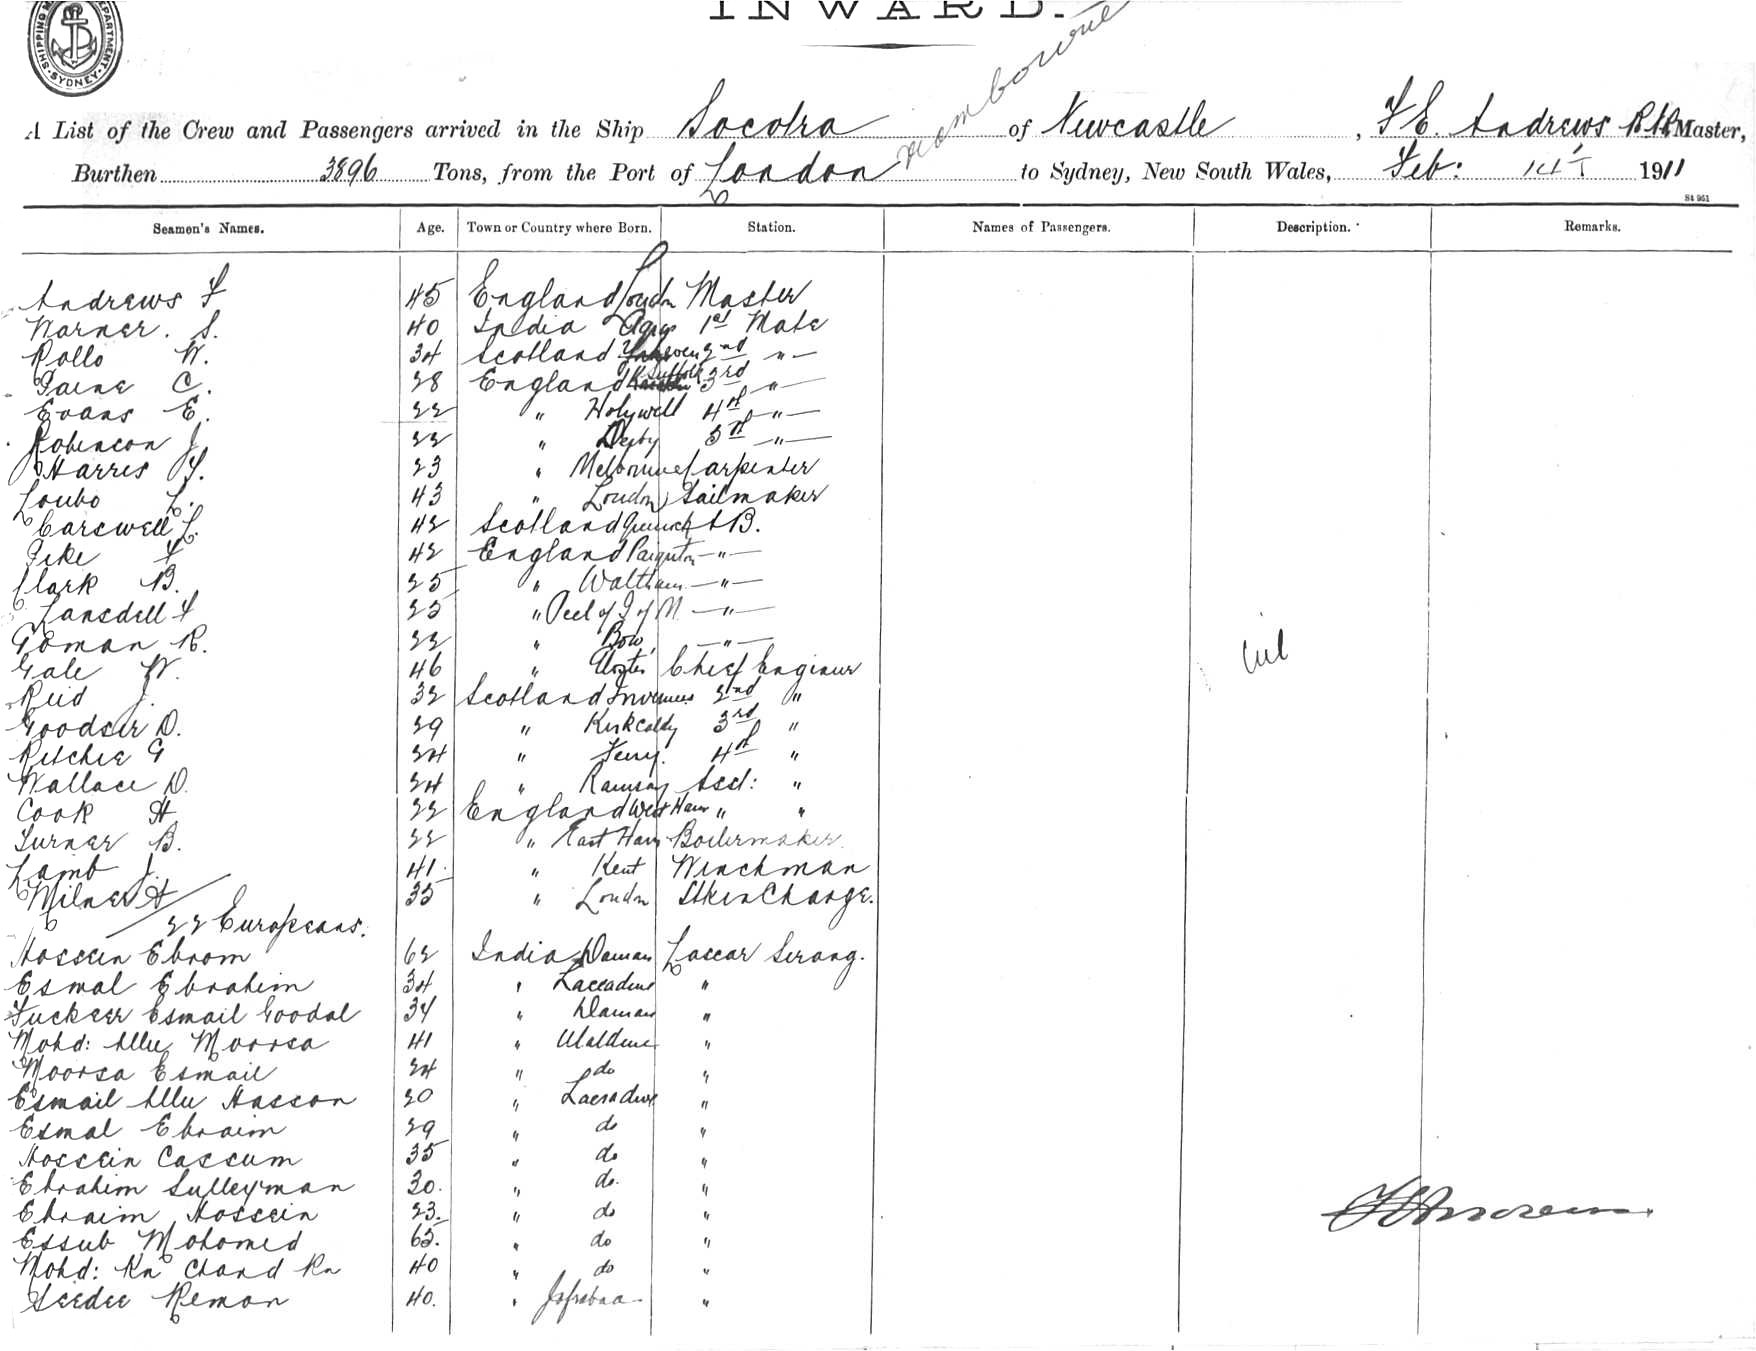 SHIPPING M DEPARTMENT SYDNEY
INWARD.
A List of the Crew and Passengers arrived in the Ship Socotra of Newcastle, F E. Andrews RNR Master,
Burthen 3896 Tons, from the Port of London to Sydney, New South Wales, Feb: 14 1911
St 951
Seamen's Names. Age. Town or Country where Born. Station. Names of Passengers. Description. Remarks.
Andrews F 45 England London Master
Warner. S. 40 India 1st Mate
Rollo W. 34 Scotland 2nd "
Paine C. 28 England Suffolk 3rd "
Evans E. 22 " Holywell 4th "
Robinson J. 22 " Derby 5th "
Harris F. 23 " Melbourne Carpenter
Loubo L. 43 " London Sailmaker
Carswell L. 42 Scotland Greenock A B.
Pike F 42 England Paignton "
Clark B. 25 " Waltham "
Lansdell F 25 " Peel of I of M "
Goman R. 22 " Bow, "
Gale W. 46 " Chief Engineer
Reid J. 32 Scotland Inverness 2nd "
Goodsir D. 29 " Kirkcaldy 3rd "
Ritchie G 24 " Ferry. 4th "
Wallace D. 24 " Ramsay Asst: "
Cook H 22 England West Ham " "
Turner B. 22 " East Ham Boilermaker.
Lamb J. 41. " Kent Winchman
Milnes H 35 " London Stkr in Charge.
22 Europeans.
Hossein Ebrom 62 India Daman Lascar Serang.
Esmal Ebrahim 34 " Laccadive "
Fuckeer Esmail Goodal 34 " Daman "
Mohd: Allee Moorsa 41 " Maldive "
Moorsa Esmail 24 " do "
Esmail Allee Hasson 20 " Laccadive "
Esmal Ebraim 29 " do "
Hossein Cassum 35 " do "
Ebrahim Sulleyman 30. " do. "
Ebraim Hossein 23. " do "
Essub Mohomed 65. " do "
Mohd: Kn Chand Kn 40 " do "
Seedee Remon 40. " "
nil